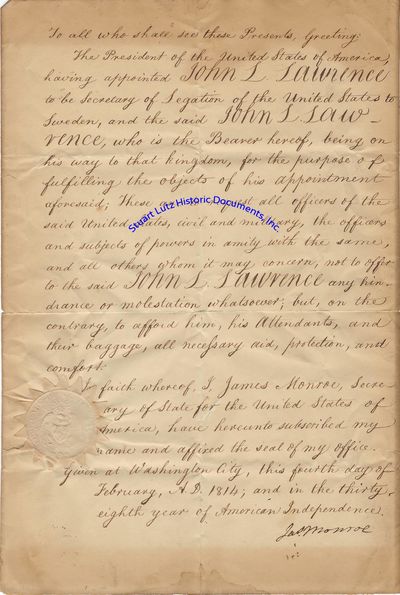 To all who shall see these Presents, Greeting:
The President of the United States of America,
having appointed John L. Lawrence
to be Secretary of Legation of the United States to
Sweden, and the said John L. Law-
rence, who is the Bearer hereof, being on
his way to that Kingdom, for the purpose of
fulfilling the objects of his appointment
aforesaid; These all officers of the
said United States, civil and military, the officers
and subjects of powers in amity with the same,
and all others whom it may concern, not to offer
to the said John L. Lawrence any hin-
drance or molestation whatsoever; but, on the
contrary, to afford him, his Attendants, and
their baggage, all necessary aid, protection, and
comfort.
In faith whereof, I, James Monroe, Secre-
ary of State for the United States of
America, have hereunto subscribed my
name and affixed the seal of my office.
Given at Washington City, this fourth day of
February, A.D. 1814; and in the thirty-
eighth year of American Independence.
Jas Monroe
Stuart Lutz Historic Documents, Inc.